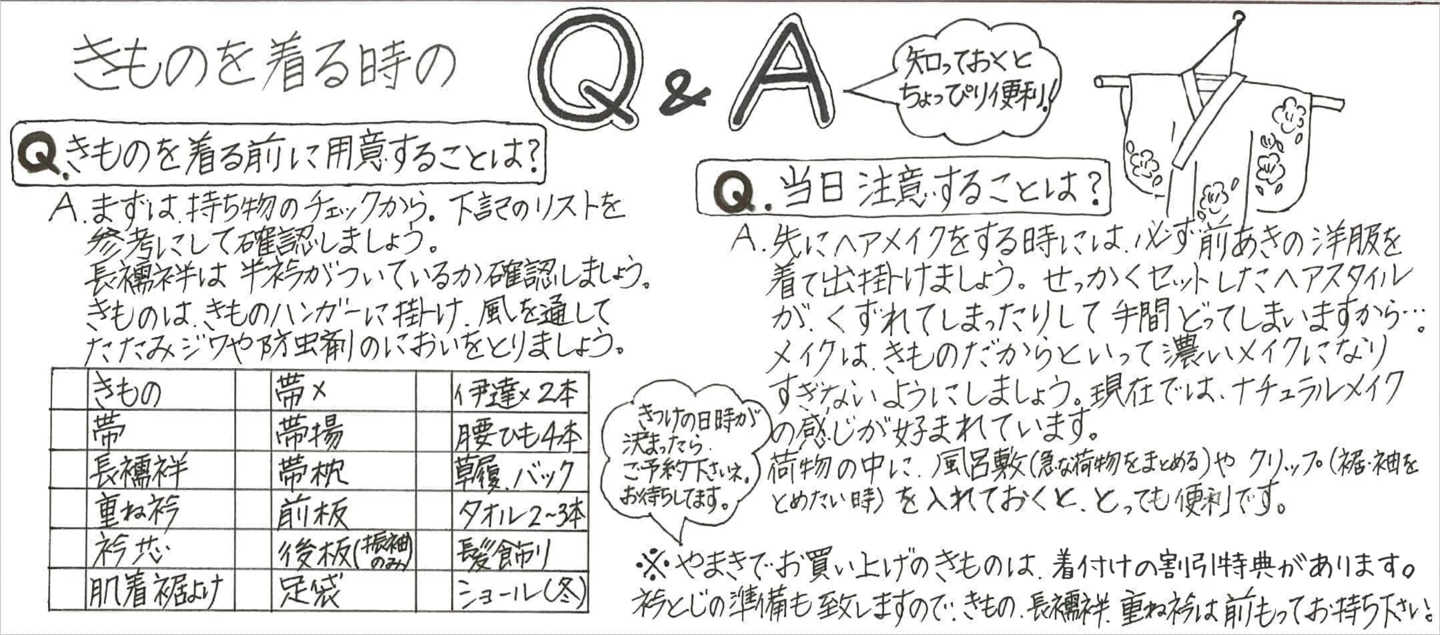 きものを着る時の
Q & A
知っておくと
ちょっぴり便利!
Q.きものを着る前に用意することは?
A.まずは、持ち物のチェックから。下記のリストを
参考にして確認しましょう。
長襦袢は半衿がついているか確認しましょう。
きものは、きものハンガーに掛け、風を通して
たたみジワや防虫剤のにおいをとりましょう。
きもの 帯〆 伊達〆2本
帯 帯揚 腰ひも4本
長襦袢 帯枕 草履、バック
重ね衿 前板 タオル2~3本
衿芯 後板(振袖のみ) 髪飾り
肌着裾よけ 足袋 ショール(冬)
きつけの日時が
決まったら、
ご予約下さいネ。
お待ちしてます。
Q.当日注意することは?
A.先にヘアメイクをする時には、必ず前あきの洋服を
着て出掛けましょう。せっかくセットしたヘアスタイル
が、くずれてしまったりして手間どってしまいますから…。
メイクは、きものだからといって濃いメイクになり
すぎないようにしましょう。現在では、ナチュラルメイク
の感じが好まれています。
荷物の中に、風呂敷(急な荷物をまとめる)やクリップ(裾・袖を
とめたい時)を入れておくと、とっても便利です。
※やまきでお買い上げのきものは、着付けの割引特典があります。
衿とじの準備も致しますので、きもの、長襦袢、重ね衿は前もってお持ち下さい。